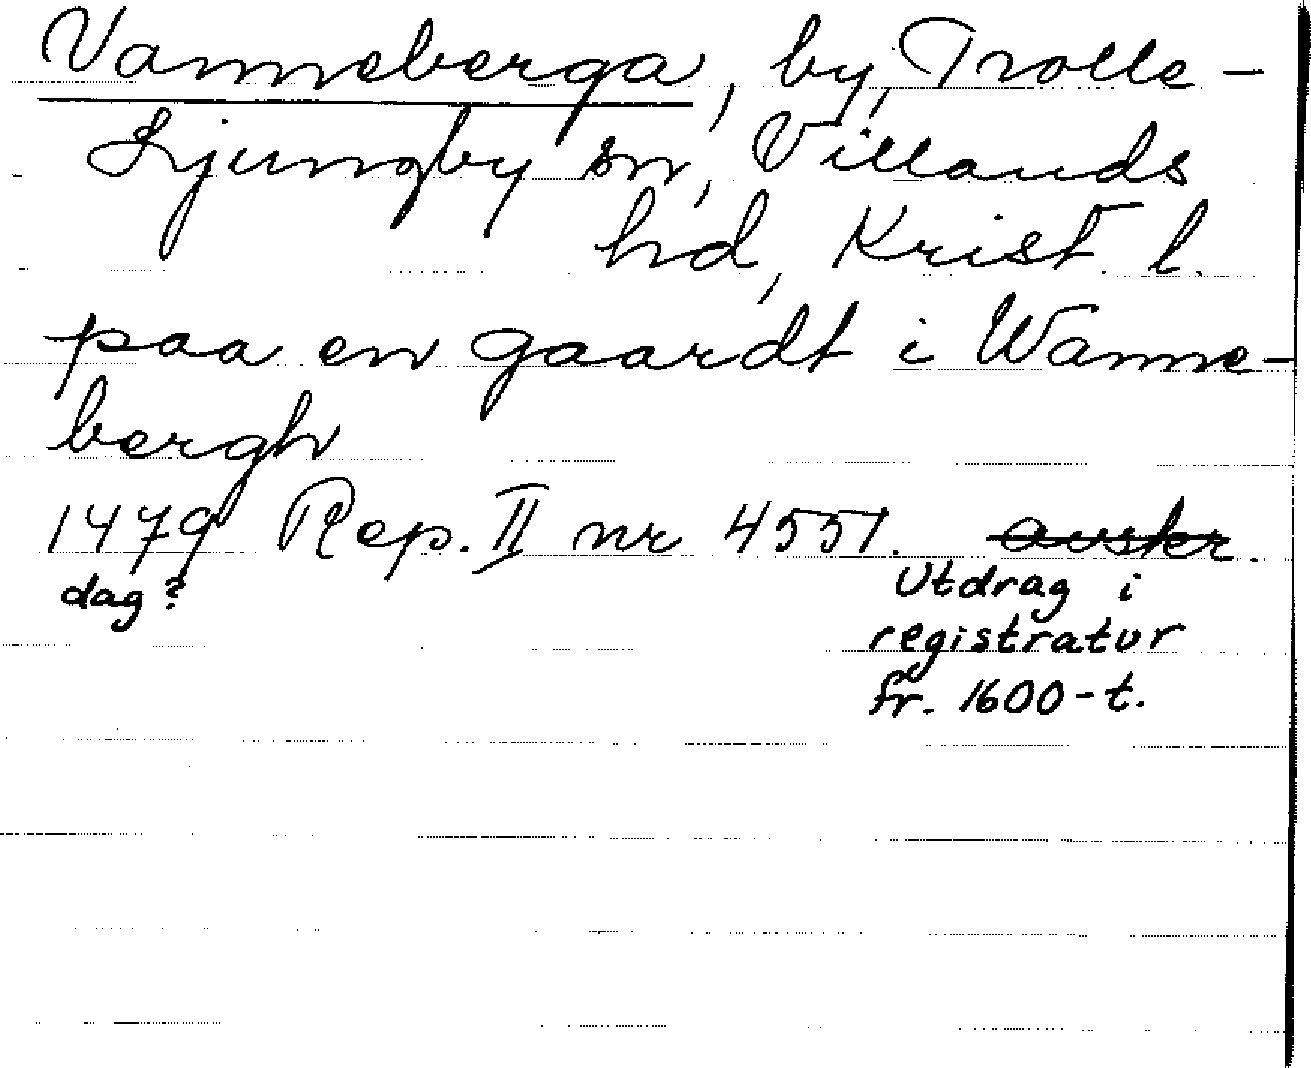 Vanneberga, by, Trolle-
Ljungby sn, Villands
hd, Krist. l.
paa en gaardt i Wanne-
bergh
1479 Rep. II nr 4551. avskr.
dag? Utdrag i
registratur
fr. 1600-t.